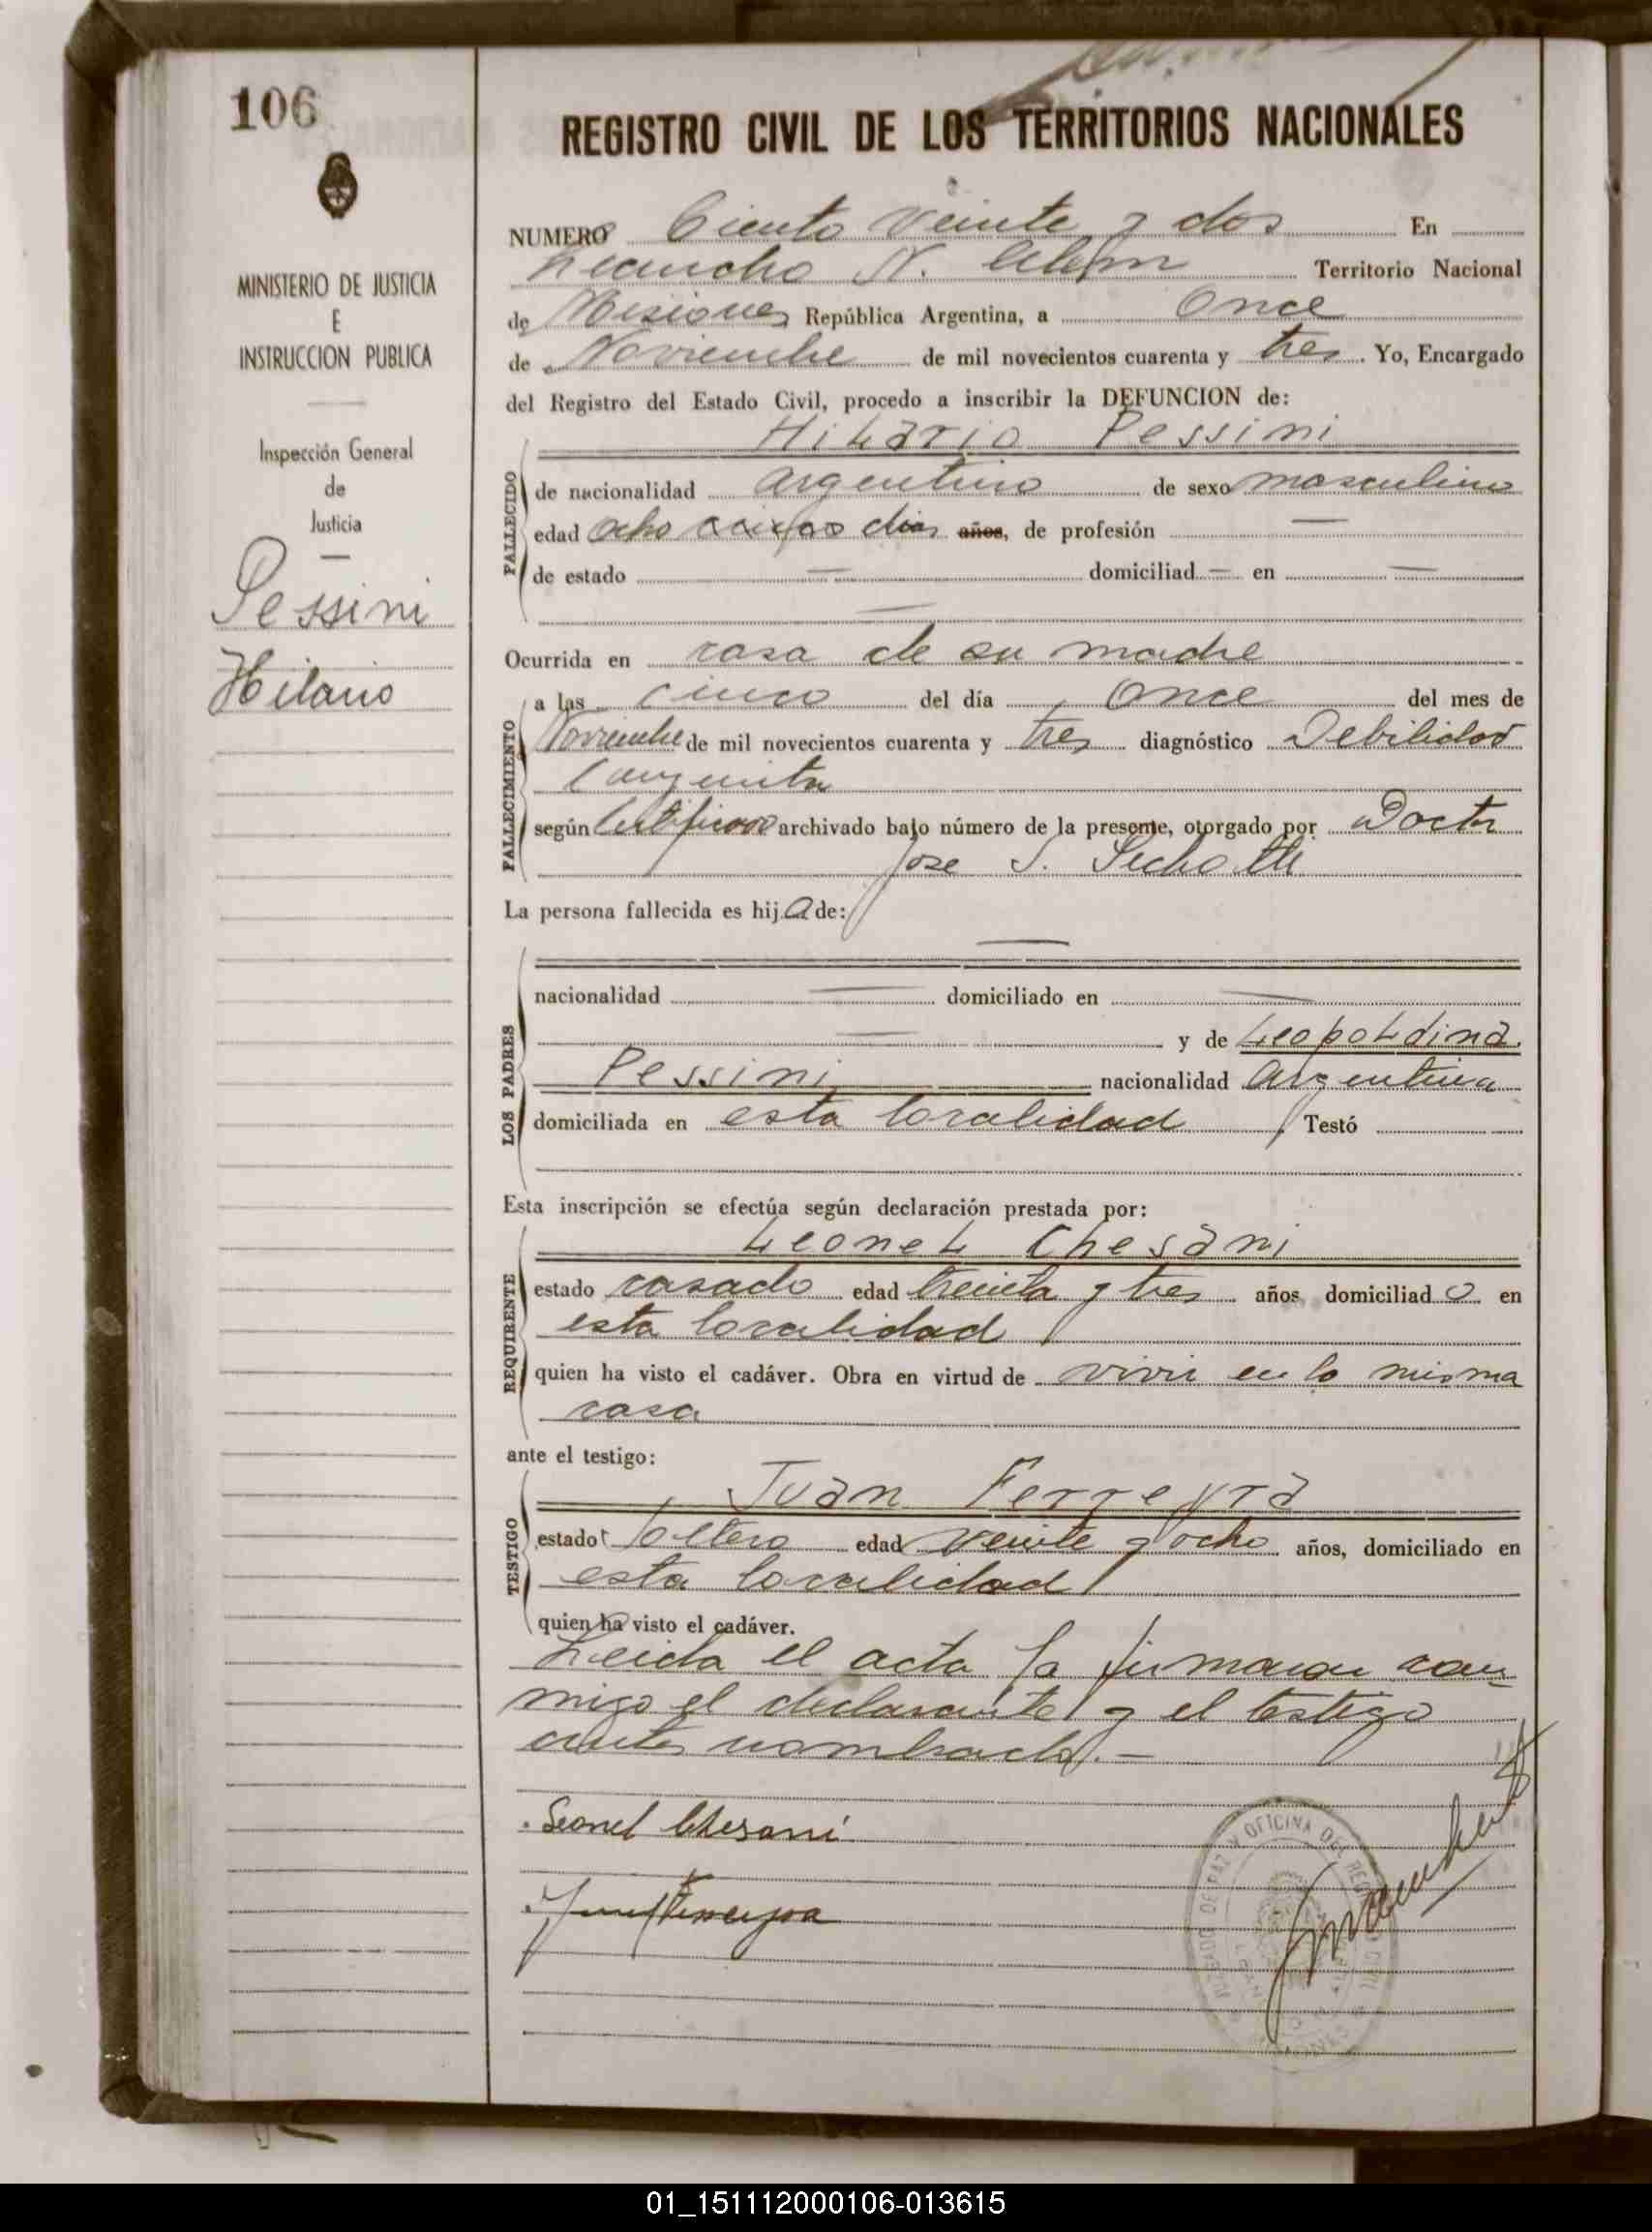 106
REGISTRO CIVIL DE LOS TERRITORIOS NACIONALES
MINISTERIO DE JUSTICIA
E
INSTRUCCION PUBLICA
Inspección General
de
Justicia
Pessini
Hilario
NUMERO Ciento veinte y dos En
Leandro N. Alem Territorio Nacional
de Misiones República Argentina, a Once
de Noviembre de mil novecientos cuarenta y tres. Yo, Encargado
del Registro del Estado Civil, procedo a inscribir la DEFUNCION de:
Hilario Pessini
FALLECIDO
de nacionalidad argentino de sexo masculino
edad ocho dias años, de profesión —
de estado — domiciliad — en —
Ocurrida en casa de su madre
FALLECIMIENTO
a las cinco del día Once del mes de
Noviembre de mil novecientos cuarenta y tres diagnóstico Debilidad
Congenita
según Certificado archivado bajo número de la presente, otorgado por Doctor
Jose
La persona fallecida es hij o de:
LOS PADRES
—
nacionalidad — domiciliado en —
— y de Leopoldina
Pessini nacionalidad Argentina
domiciliada en esta localidad Testó
Esta inscripción se efectúa según declaración prestada por:
REQUIRENTE
Leonel Chesani
estado casado edad treinta y tres años domiciliad o en
esta localidad
quien ha visto el cadáver. Obra en virtud de vivir en la misma
casa
ante el testigo:
TESTIGO
Juan Ferreyra
estado soltero edad veinte y ocho años, domiciliado en
esta localidad
quien ha visto el cadáver.
Leida el acta la firmaron con
migo el declarante y el testigo
antes nombrado. —
Leonel Chesani
Juan Ferreyra
OFICINA DEL REGISTRO CIVIL
01_151112000106-013615